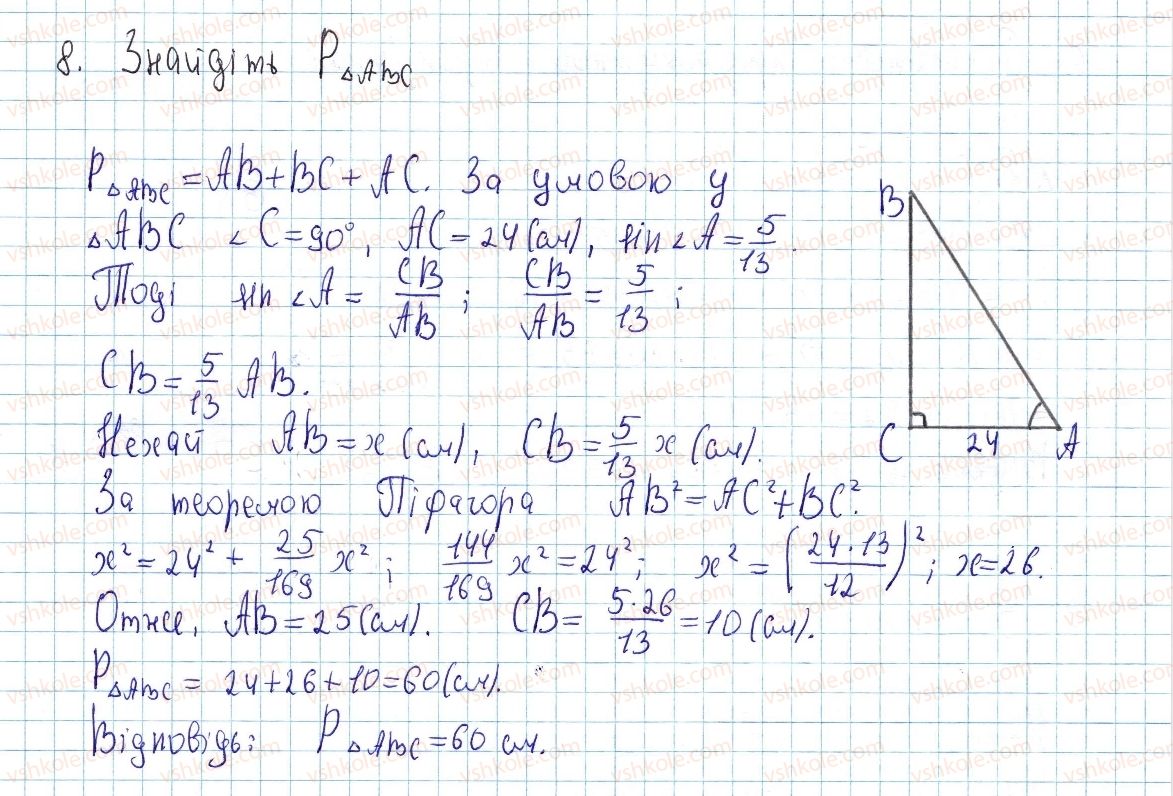 8. Знайдіть P△ABC
P△ABC = AB + BC + AC. За умовою у
△ABC ∠C = 90°, AC = 24 (см), sin∠A = 5/13.
Тоді sin∠A = CB/AB; CB/AB = 5/13;
CB = 5/13 AB.
Нехай AB = x (см), CB = 5/13 x (см).
За теоремою Піфагора AB² = AC² + BC².
x² = 24² + 25/169 x²; 144/169 x² = 24²; x² = (24·13/12)²; x = 26.
Отже, AB = 25 (см). CB = 5·26/13 = 10 (см).
P△ABC = 24 + 26 + 10 = 60 (см).
Відповідь: P△ABC = 60 см.
B
C 24 A
vshkole.com